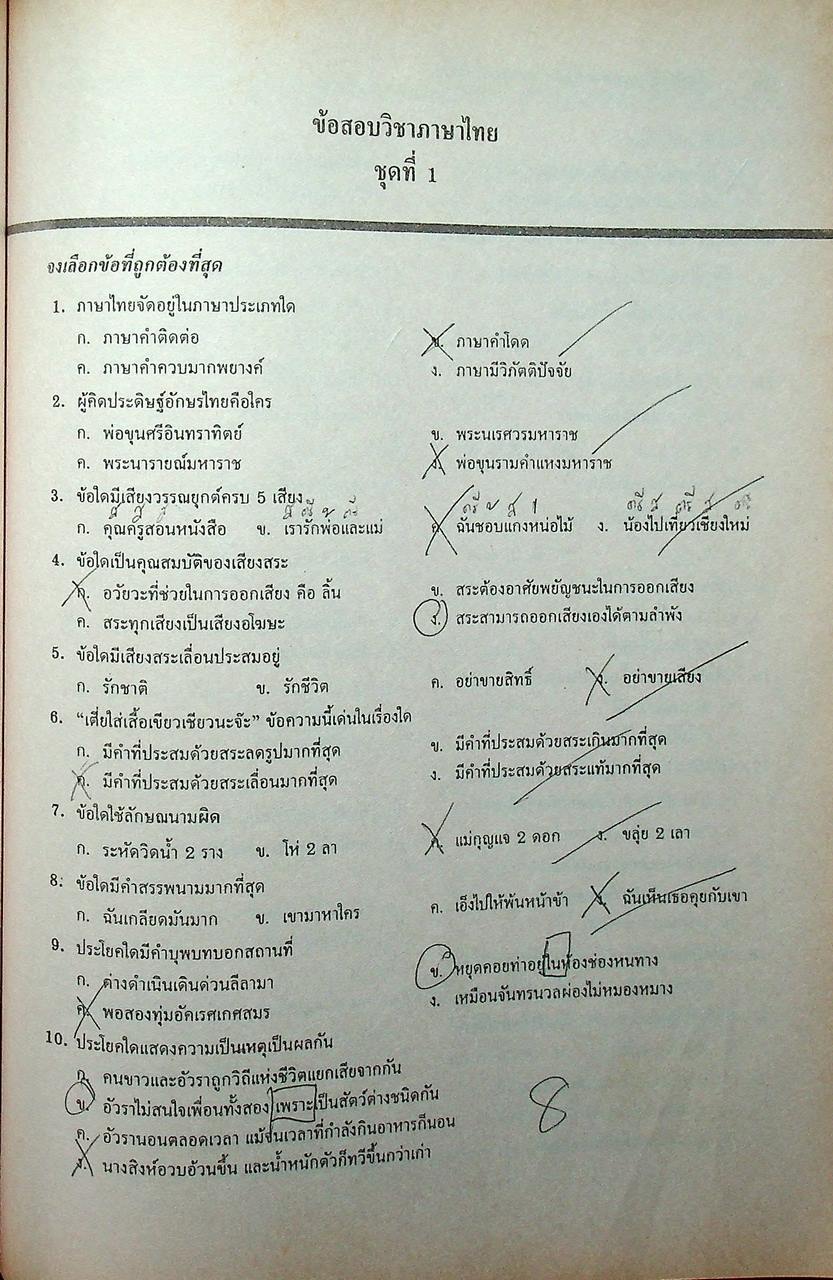 ข้อสอบวิชาภาษาไทย
ชุดที่ 1
จงเลือกข้อที่ถูกต้องที่สุด
1. ภาษาไทยจัดอยู่ในภาษาประเภทใด
ก. ภาษาคำติดต่อ ข. ภาษาคำโดด
ค. ภาษาคำควบมากพยางค์ ง. ภาษามีวิภัตติปัจจัย
2. ผู้คิดประดิษฐ์อักษรไทยคือใคร
ก. พ่อขุนศรีอินทราทิตย์ ข. พระนเรศวรมหาราช
ค. พระนารายณ์มหาราช ง. พ่อขุนรามคำแหงมหาราช
3. ข้อใดมีเสียงวรรณยุกต์ครบ 5 เสียง
ก. คุณครูสอนหนังสือ ข. เรารักพ่อและแม่ ค. ฉันชอบแกงหน่อไม้ ง. น้องไปเที่ยวเชียงใหม่
4. ข้อใดเป็นคุณสมบัติของเสียงสระ
ก. อวัยวะที่ช่วยในการออกเสียง คือ ลิ้น ข. สระต้องอาศัยพยัญชนะในการออกเสียง
ค. สระทุกเสียงเป็นเสียงอโฆษะ ง. สระสามารถออกเสียงเองได้ตามลำพัง
5. ข้อใดมีเสียงสระเลื่อนประสมอยู่
ก. รักชาติ ข. รักชีวิต ค. อย่าขายสิทธิ์ ง. อย่าขายเสียง
6. “เตี่ยใส่เสื้อเขียวเชียวนะจ๊ะ” ข้อความนี้เด่นในเรื่องใด
ก. มีคำที่ประสมด้วยสระลดรูปมากที่สุด ข. มีคำที่ประสมด้วยสระเกินมากที่สุด
ค. มีคำที่ประสมด้วยสระเลื่อนมากที่สุด ง. มีคำที่ประสมด้วยสระแท้มากที่สุด
7. ข้อใดใช้ลักษณนามผิด
ก. ระหัดวิดน้ำ 2 ราง ข. โห่ 2 ลา ค. แม่กุญแจ 2 ดอก ง. ขลุ่ย 2 เลา
8. ข้อใดมีคำสรรพนามมากที่สุด
ก. ฉันเกลียดมันมาก ข. เขามาหาใคร ค. เอ็งไปให้พ้นหน้าข้า ง. ฉันเห็นเธอคุยกับเขา
9. ประโยคใดมีคำบุพบทบอกสถานที่
ก. ต่างดำเนินเดินด่วนลีลามา ข. หยุดคอยท่าอยู่ในห้องช่องหนทาง
ค. พอสองทุ่มอัคเรศเกศสมร ง. เหมือนจันทรนวลผ่องไม่หมองหมาง
10. ประโยคใดแสดงความเป็นเหตุเป็นผลกัน
ก. คนขาวและอัวราถูกวิถีแห่งชีวิตแยกเสียจากกัน
ข. อัวราไม่สนใจเพื่อนทั้งสอง เพราะเป็นสัตว์ต่างชนิดกัน
ค. อัวรานอนตลอดเวลา แม้ในเวลาที่กำลังกินอาหารก็นอน
ง. นางสิงห์อวบอ้วนขึ้น และน้ำหนักตัวก็ทวีขึ้นกว่าเก่า
8